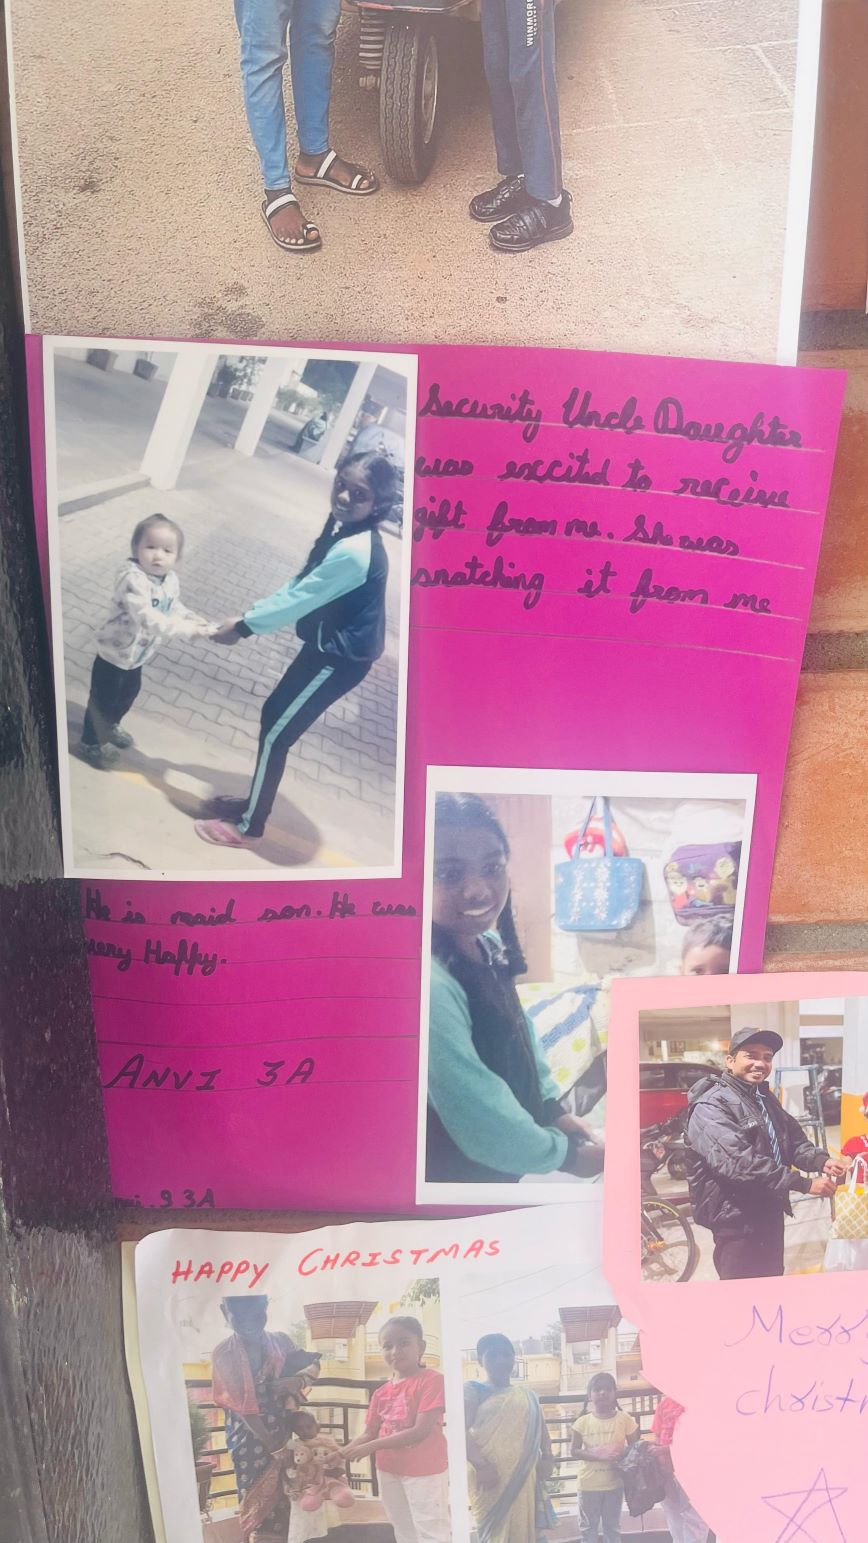 WINMORE
Security Uncle Daughter
was excited to receive
gift from me. She was
snatching it from me
He is maid son. He was
very Happy.
ANVI 3A
3A
HAPPY CHRISTMAS
Merry
christm